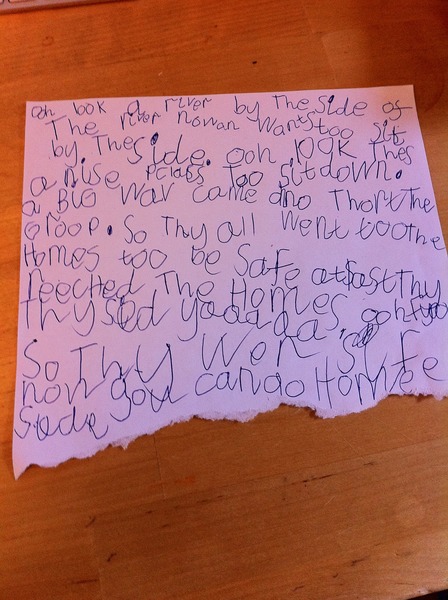 ooh look a river by The side of
The river nowan wants too sit
by. The side. ooh look Thes
a nise Pclass too sitdown.
a BIG wav came and Thort The
Groop. So Thy all went too the
Homes too be Safe at last Thy
reeched The Homes
Thy sed yaaaas.
So Thy Wer
now you can go Home